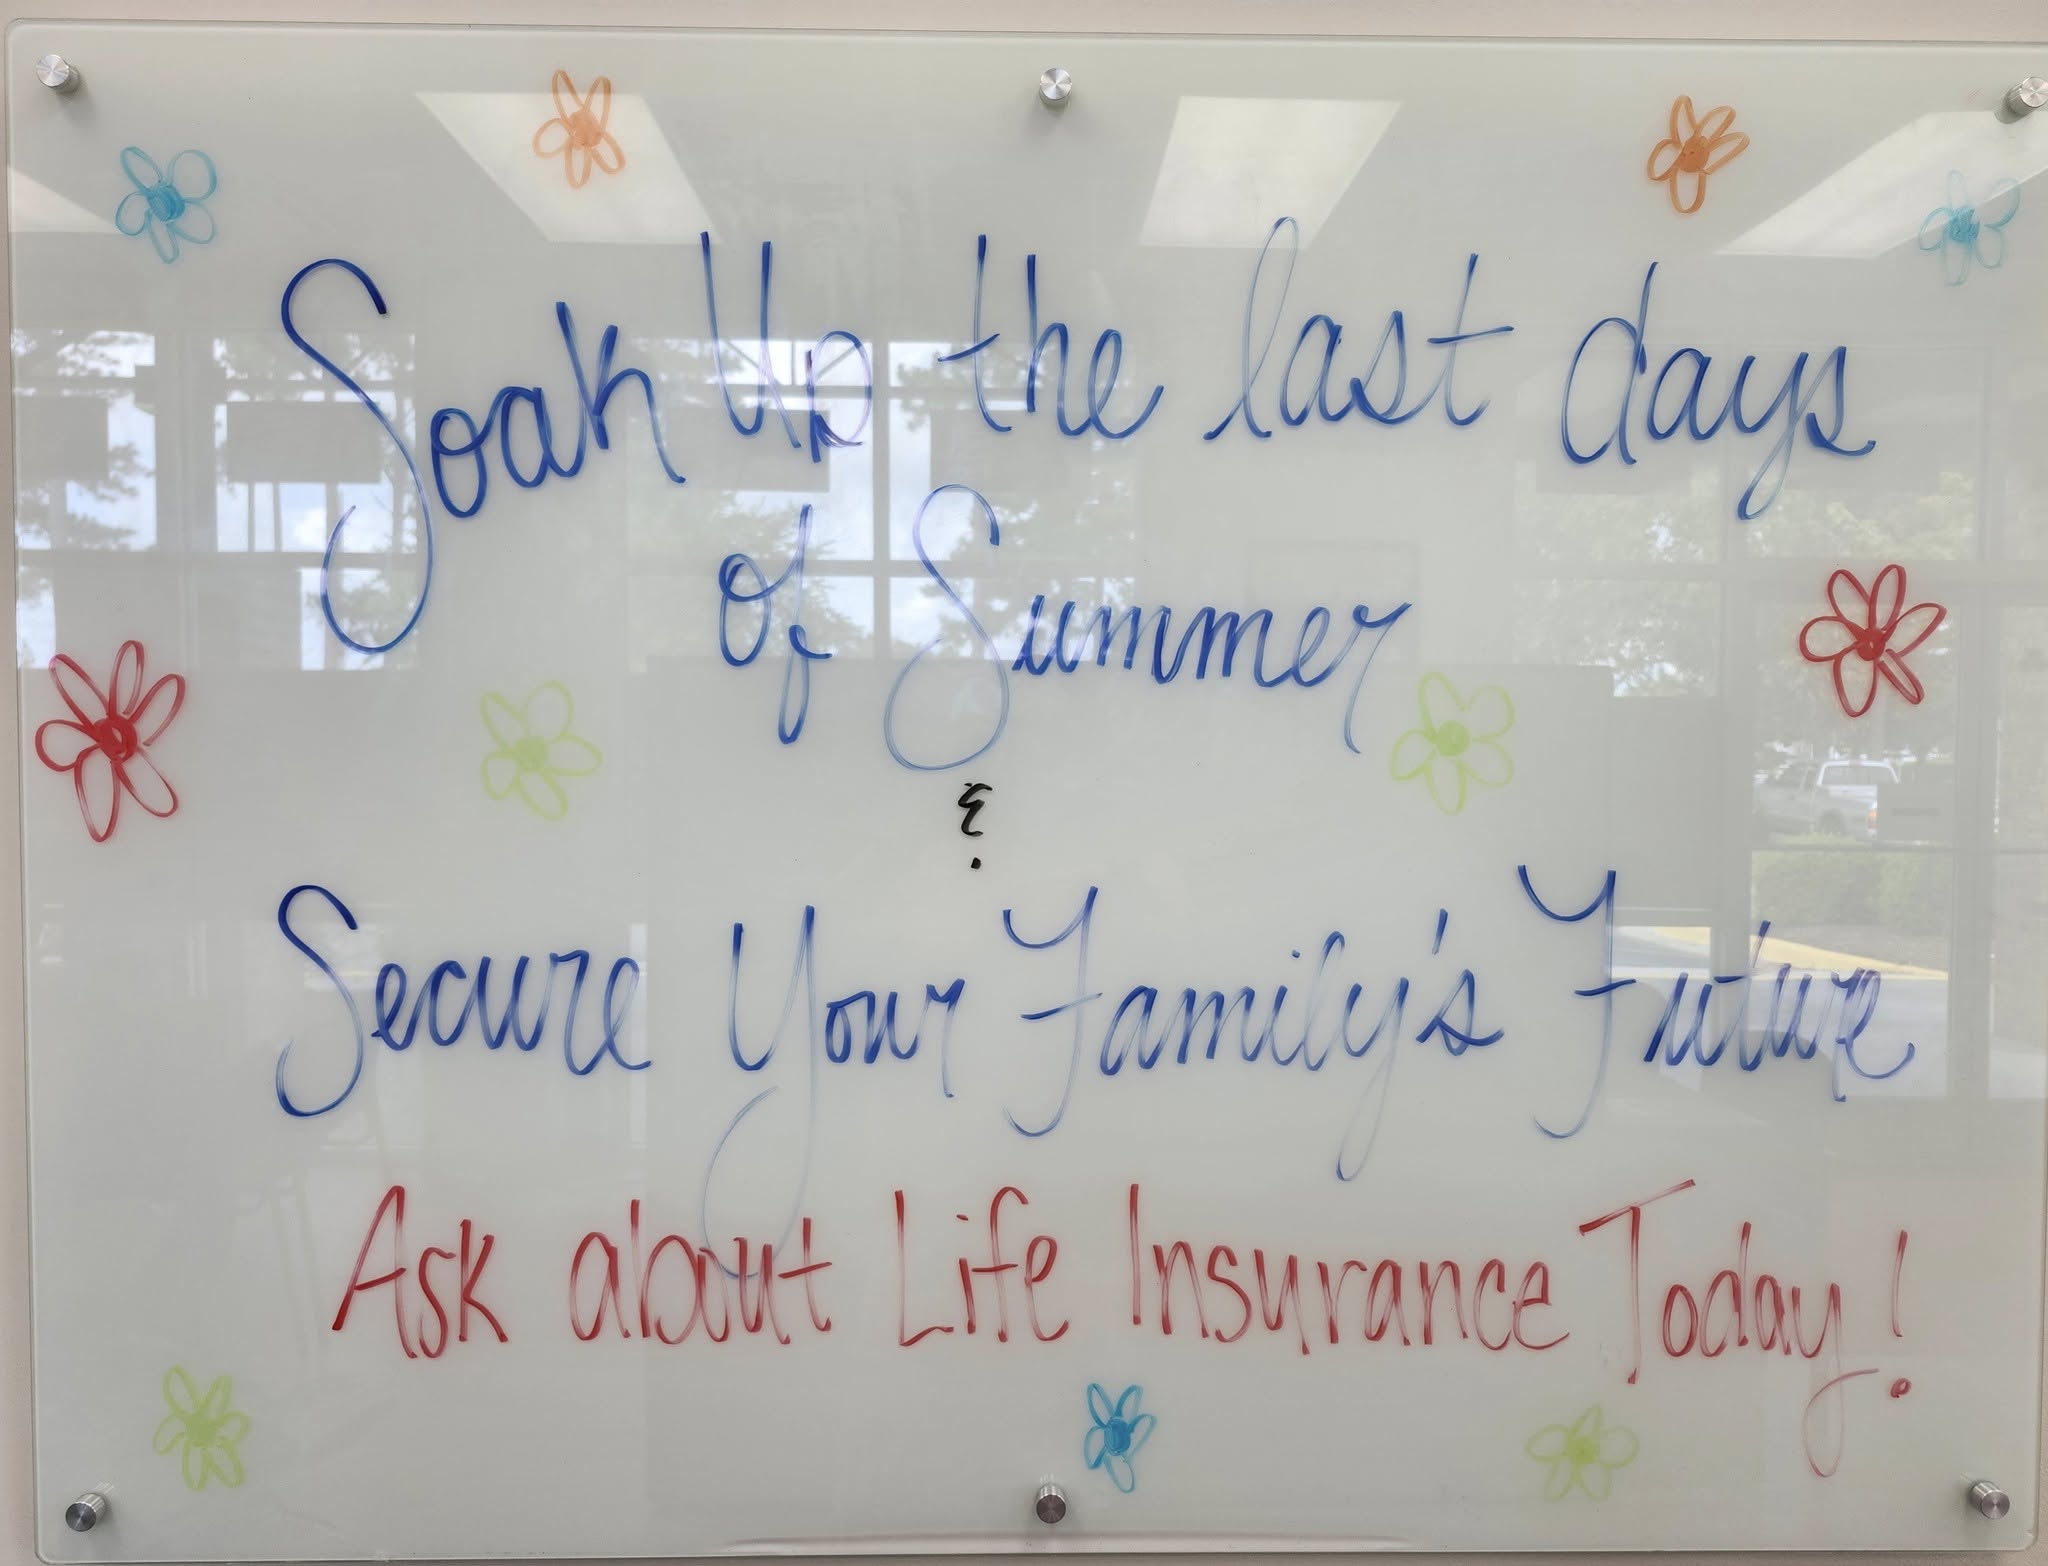 Soak Up the last days
of Summer
&
Secure Your Family's Future
Ask about Life Insurance Today!